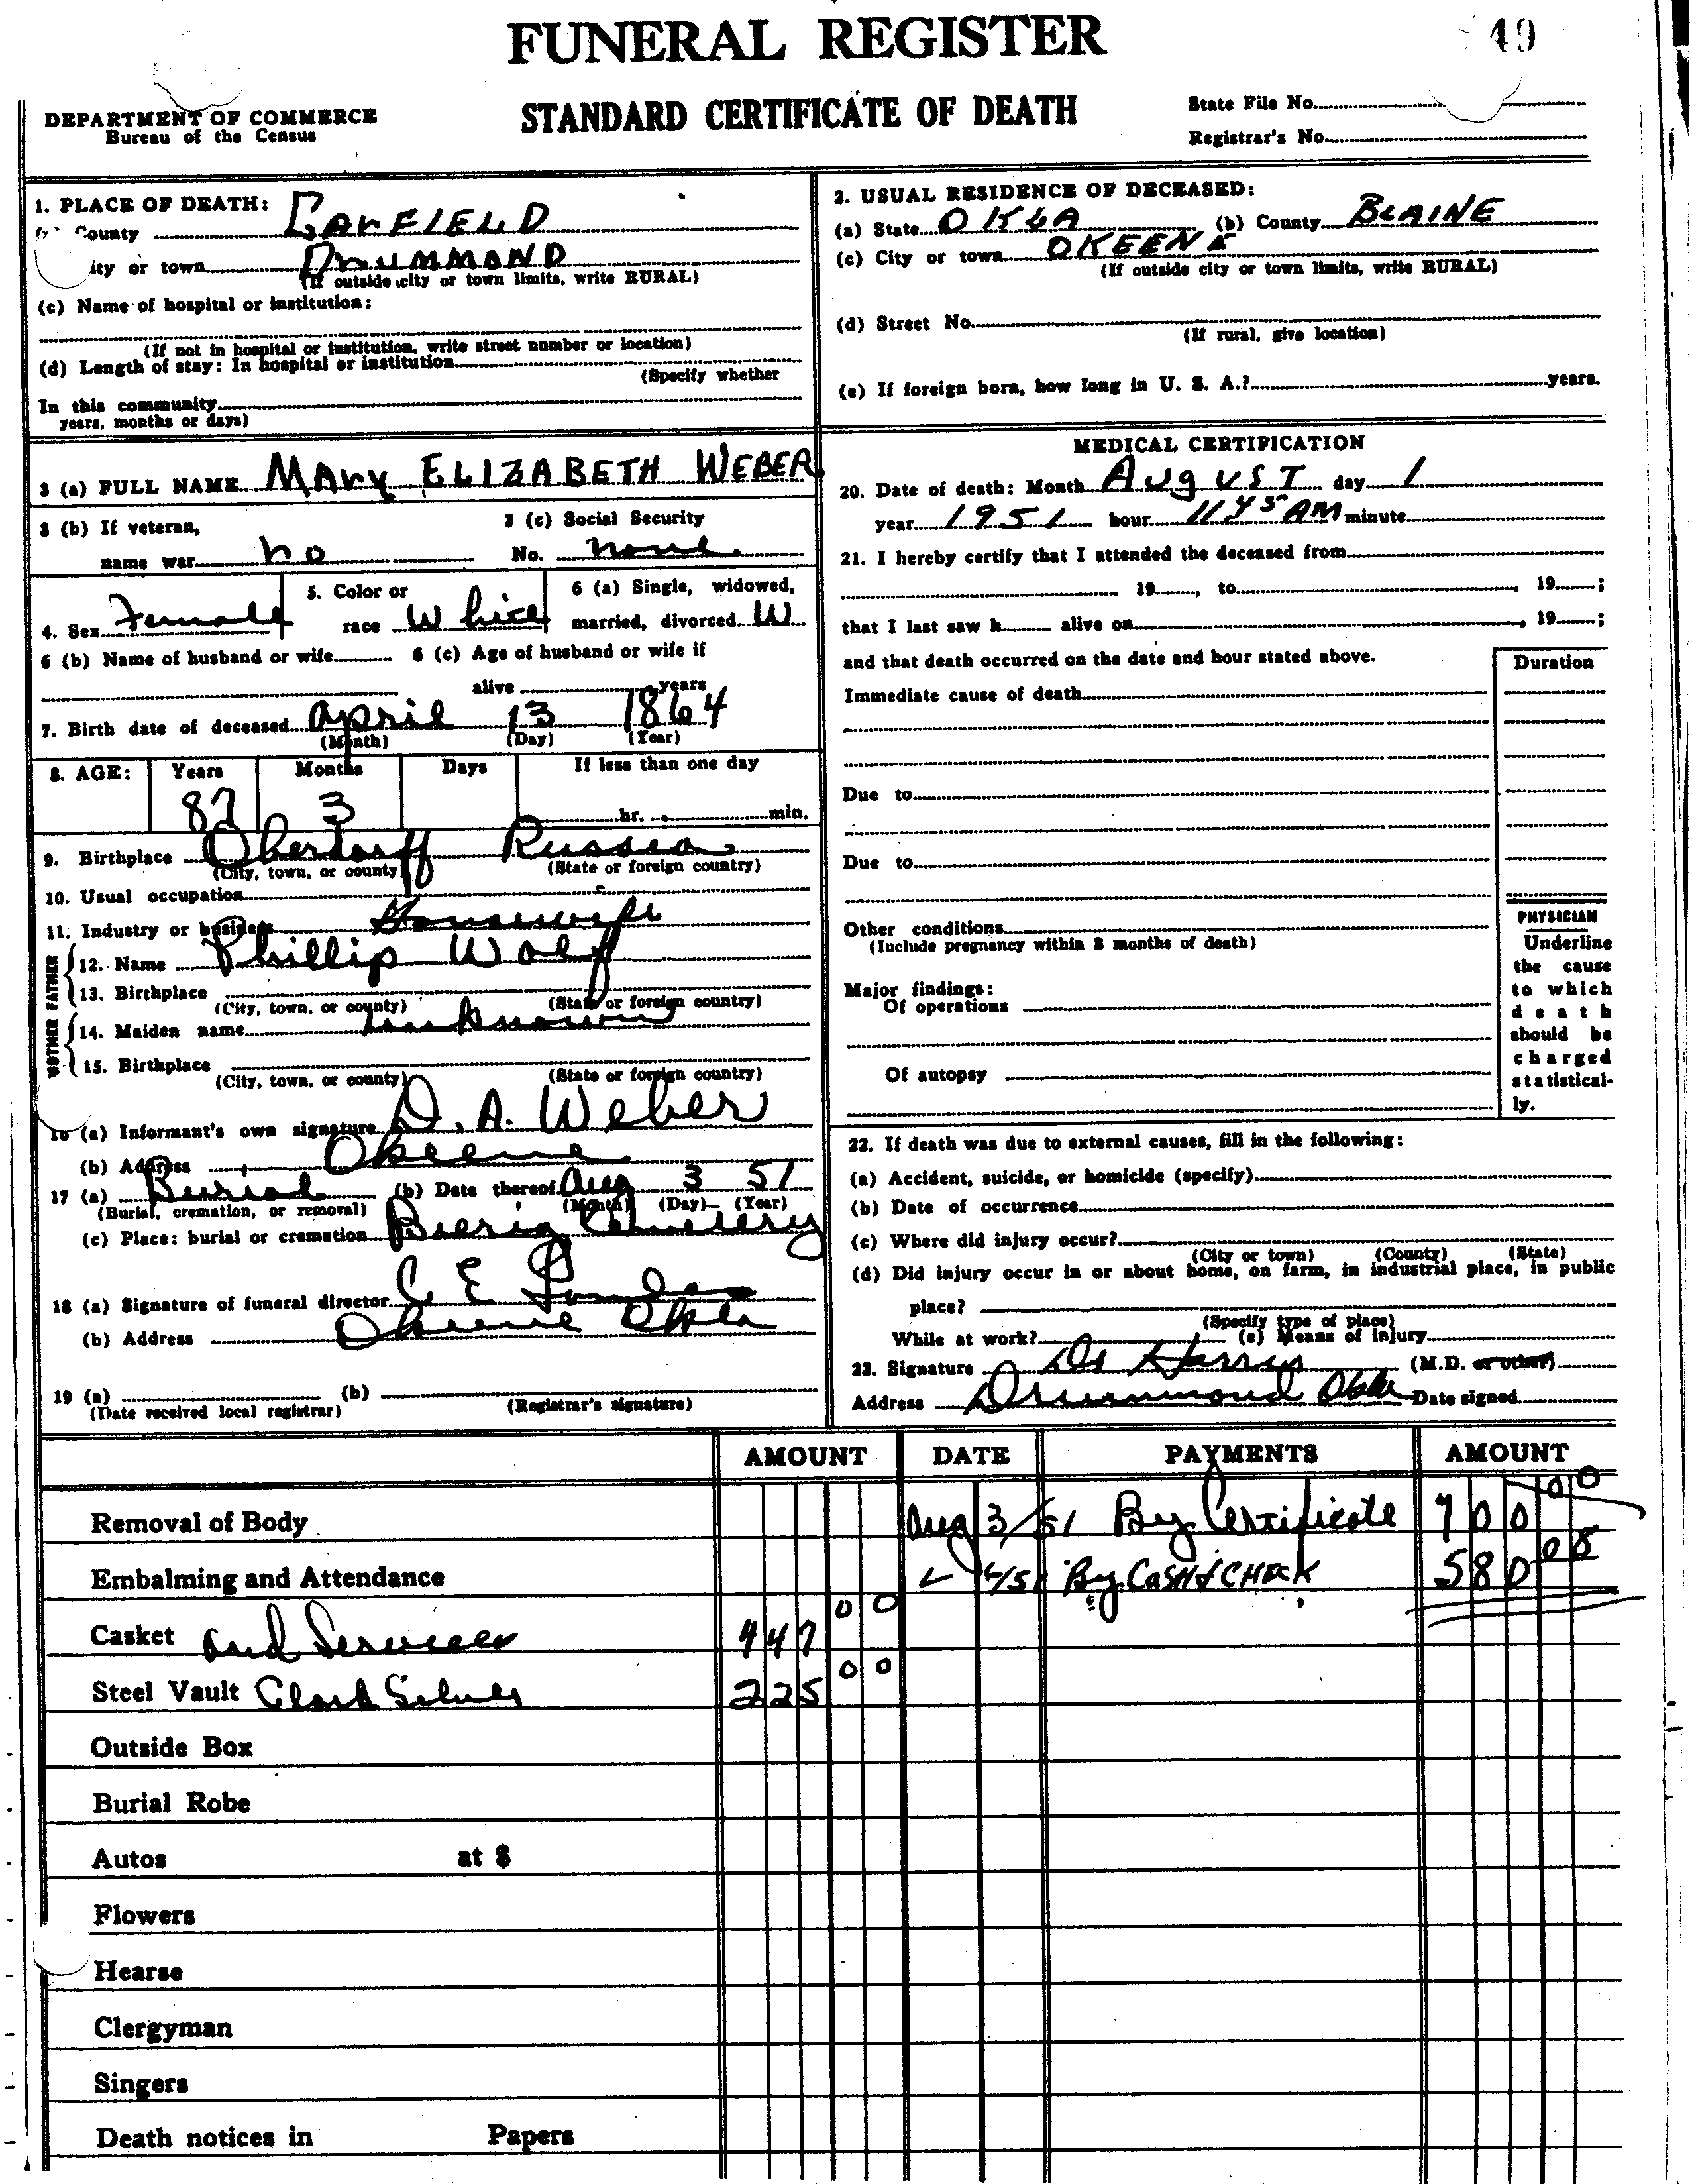 FUNERAL REGISTER
49
DEPARTMENT OF COMMERCE
Bureau of the Census
STANDARD CERTIFICATE OF DEATH
State File No.
Registrar's No.
1. PLACE OF DEATH:
County GARFIELD
ity or town DRUMMOND
(If outside city or town limits, write RURAL)
(c) Name of hospital or institution:
(If not in hospital or institution, write street number or location)
(d) Length of stay: In hospital or institution
(Specify whether
In this community
years, months or days)
2. USUAL RESIDENCE OF DECEASED:
(a) State OKLA (b) County BLAINE
(c) City or town OKEENE
(If outside city or town limits, write RURAL)
(d) Street No.
(If rural, give location)
(e) If foreign born, how long in U. S. A.? years.
3 (a) FULL NAME MARY ELIZABETH WEBER
3 (b) If veteran, 3 (c) Social Security
name war no No. none
4. Sex Female 5. Color or race White 6 (a) Single, widowed, married, divorced W
6 (b) Name of husband or wife 6 (c) Age of husband or wife if
alive years
7. Birth date of deceased April 13 1864
(Month) (Day) (Year)
8. AGE: Years Months Days If less than one day
87 3 hr. min.
9. Birthplace Oberdorff Russia
(City, town, or county) (State or foreign country)
10. Usual occupation
11. Industry or business Housewife
FATHER
12. Name Phillip Wolf
13. Birthplace
(City, town, or county) (State or foreign country)
MOTHER
14. Maiden name unknown
15. Birthplace
(City, town, or county) (State or foreign country)
16 (a) Informant's own signature D. A. Weber
(b) Address Okeene
17 (a) Burial (b) Date thereof Aug 3 51
(Burial, cremation, or removal) (Month) (Day) (Year)
(c) Place: burial or cremation Cemetery
18 (a) Signature of funeral director C E
(b) Address Okeene Okla
19 (a) (b)
(Date received local registrar) (Registrar's signature)
MEDICAL CERTIFICATION
20. Date of death: Month AUGUST day 1
year 1951 hour 11 45 AM minute
21. I hereby certify that I attended the deceased from
19 , to , 19 ;
that I last saw h alive on , 19 ;
and that death occurred on the date and hour stated above.
Duration
Immediate cause of death
Due to
Due to
Other conditions
(Include pregnancy within 3 months of death)
Major findings:
Of operations
Of autopsy
PHYSICIAN
Underline
the cause
to which
death
should be
charged
statistical-
ly.
22. If death was due to external causes, fill in the following:
(a) Accident, suicide, or homicide (specify)
(b) Date of occurrence
(c) Where did injury occur?
(City or town) (County) (State)
(d) Did injury occur in or about home, on farm, in industrial place, in public
place?
(Specify type of place)
While at work? (e) Means of injury
23. Signature Dr Harris (M.D. or other)
Address Drummond Okla Date signed
AMOUNT DATE PAYMENTS AMOUNT
Removal of Body Aug 3/51 By Certificate 400 00
Embalming and Attendance 4/51 By CASH & CHECK 580 08
Casket and Services 447 00
Steel Vault Clark Silver 225 00
Outside Box
Burial Robe
Autos at $
Flowers
Hearse
Clergyman
Singers
Death notices in Papers